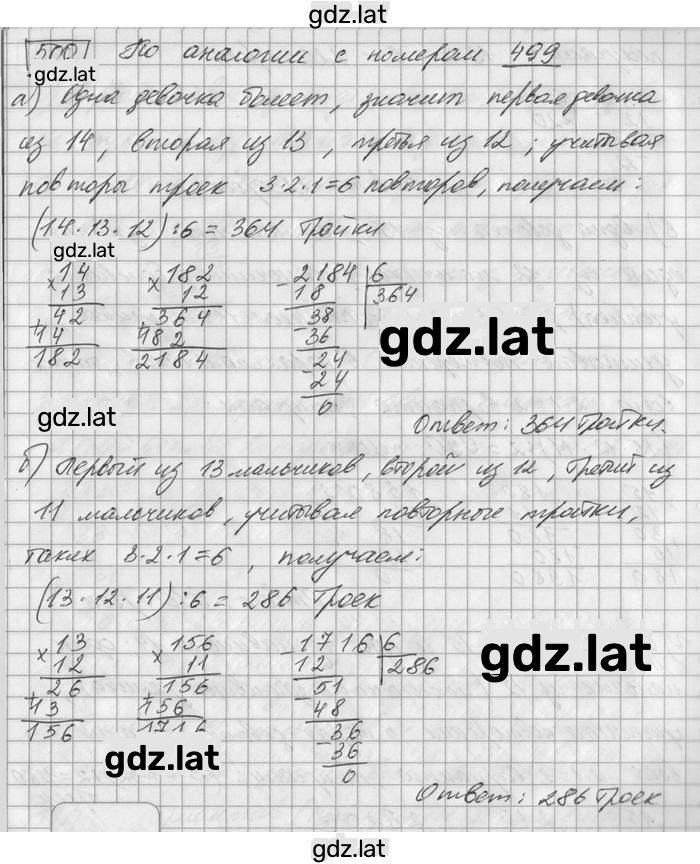 gdz.lat
500 По аналогии с номером 499
gdz.lat
а) Одна девочка болеет, значит первая девочка
из 14, вторая из 13, третья из 12; учитывая
повторы троек 3·2·1=6 повторов, получаем:
(14·13·12):6 = 364 тройки
gdz.lat
×14 ×182 -2184 6
13 12 18 364
42 364 -38
+14 +182 36
182 2184 -24
24
0
gdz.lat
gdz.lat
Ответ: 364 тройки.
б) Первый из 13 мальчиков, второй из 12, третий из
11 мальчиков, учитывая повторные тройки,
таких 3·2·1=6, получаем:
(13·12·11):6 = 286 троек
×13 ×156 -1716 6
12 11 12 286
26 156 -51
+13 +156 48
156 1716 -36
36
0
gdz.lat
gdz.lat
Ответ: 286 троек
gdz.lat